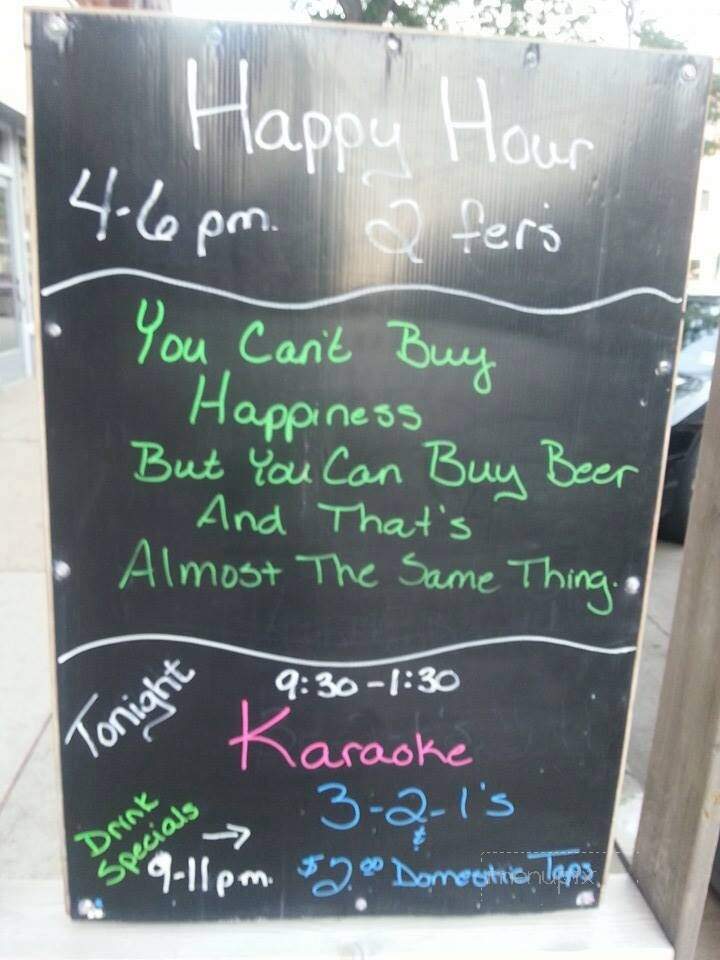 Happy Hour
4-6 pm. 2 fer's
You Can't Buy
Happiness
But You Can Buy Beer
And That's
Almost The Same Thing.
Tonight 9:30-1:30
Karaoke
Drink Specials → 3-2-1's
&
9-11pm. $2.00 Domestic Taps
menupix